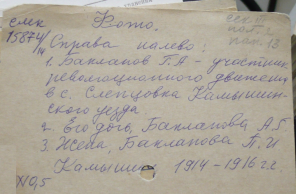 слк Фото.
15874/14
Справа налево:
1. Бакланов Г.А - участник
революционного движения
в с. Слепцовка Камышин-
ского уезда
2. Его дочь, Бакланова А.Г
3. Жена, Бакланова П.И
Камышин 1914-1916 г.г.